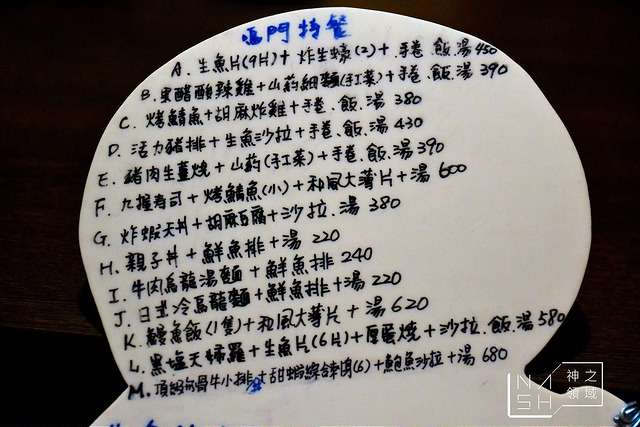 鳴門特餐
A. 生魚片(9片)+炸生蠔(2)+手卷.飯.湯 450
B. 果醋酸辣雞+山葯細麵(手工菜)+手卷.飯.湯 390
C. 烤鯖魚+胡麻炸雞+手卷.飯.湯 380
D. 活力豬排+生魚沙拉+手卷.飯.湯 430
E. 豬肉生薑燒+山葯(手工菜)+手卷.飯.湯 390
F. 九握寿司+烤鯖魚(小)+和風大薯片+湯 600
G. 炸蝦天丼+胡麻豆腐+沙拉.湯 380
H. 親子丼+鮮魚排+湯 220
I. 牛肉烏龍湯麵+鮮魚排 240
J. 日式冷烏龍麵+鮮魚排+湯 220
K. 鰻魚飯(1隻)+和風大薯片+湯 620
L. 黑塩天婦羅+生魚片(6片)+厚蛋燒+沙拉.飯.湯 580
M. 頂級旨牛小排+甜蝦(6)+鮑魚沙拉+湯 680
NASH 神之領域